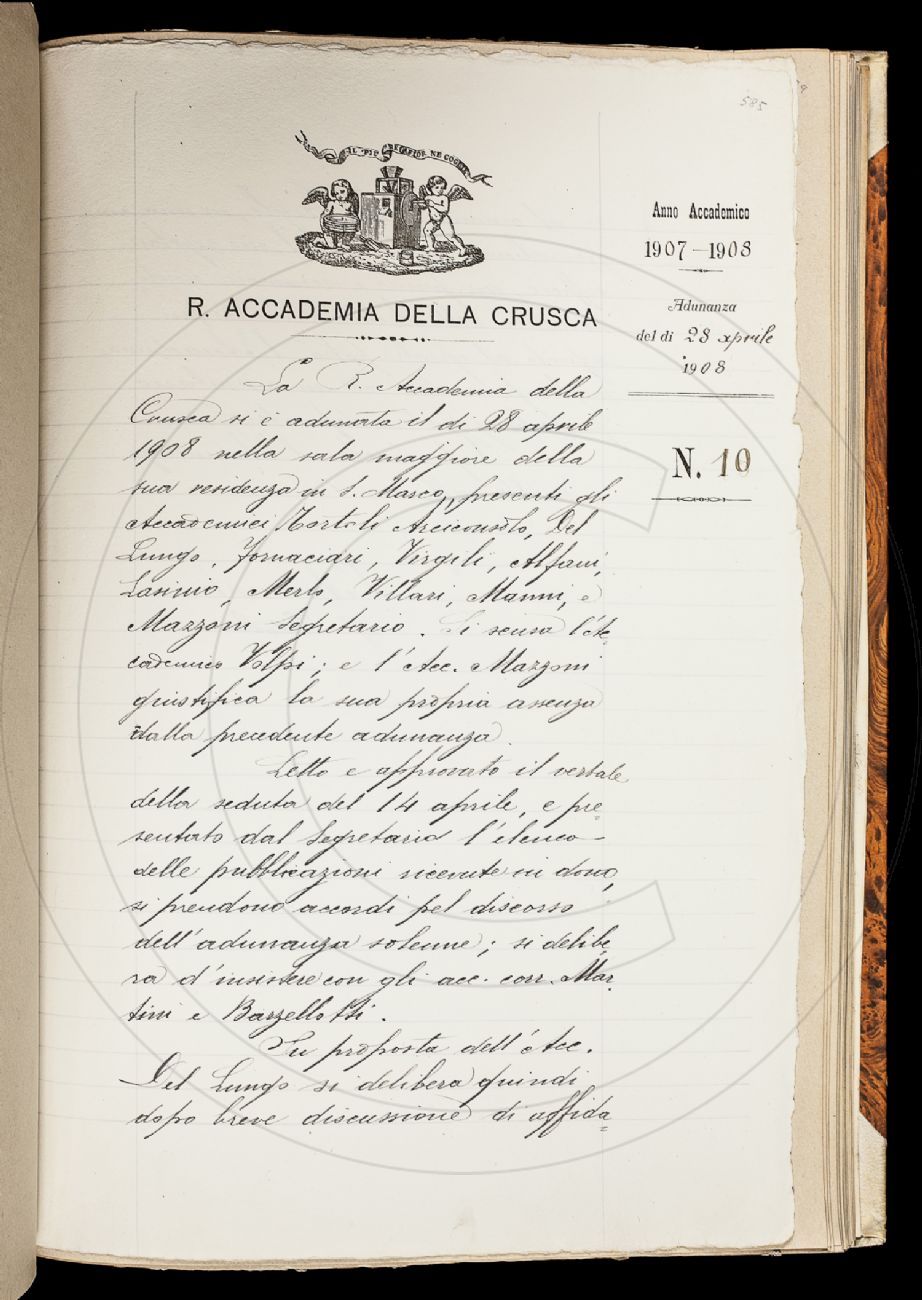 585
IL PIÙ BEL FIOR NE COGLIE
Anno Accademico
1907-1908
Adunanza
del dì 28 aprile
1908
N. 10
R. ACCADEMIA DELLA CRUSCA
La R. Accademia della
Crusca si è adunata il dì 28 aprile
1908 nella sala maggiore della
sua residenza in S. Marco, presenti gli
Accademici Tortoli Arciconsolo, Del
Lungo, Fornaciari, Virgili, Alfani,
Lasinio, Merlo, Villari, Manni, e
Mazzoni Segretario. Si scusa l'Ac-
cademico Volpi; e l'Acc. Mazzoni
giustifica la sua propria assenza
dalla precedente adunanza.
Letto e approvato il verbale
della seduta del 14 aprile, e pre=
sentato dal Segretario l'elenco
delle pubblicazioni ricevute in dono,
si prendono accordi pel discorso
dell'adunanza solenne; si delibe=
ra d'insistere con gli acc. corr. Mar=
tini e Barzellotti.
Su proposta dell'Acc.
Del Lungo si delibera quindi
dopo breve discussione di affida=